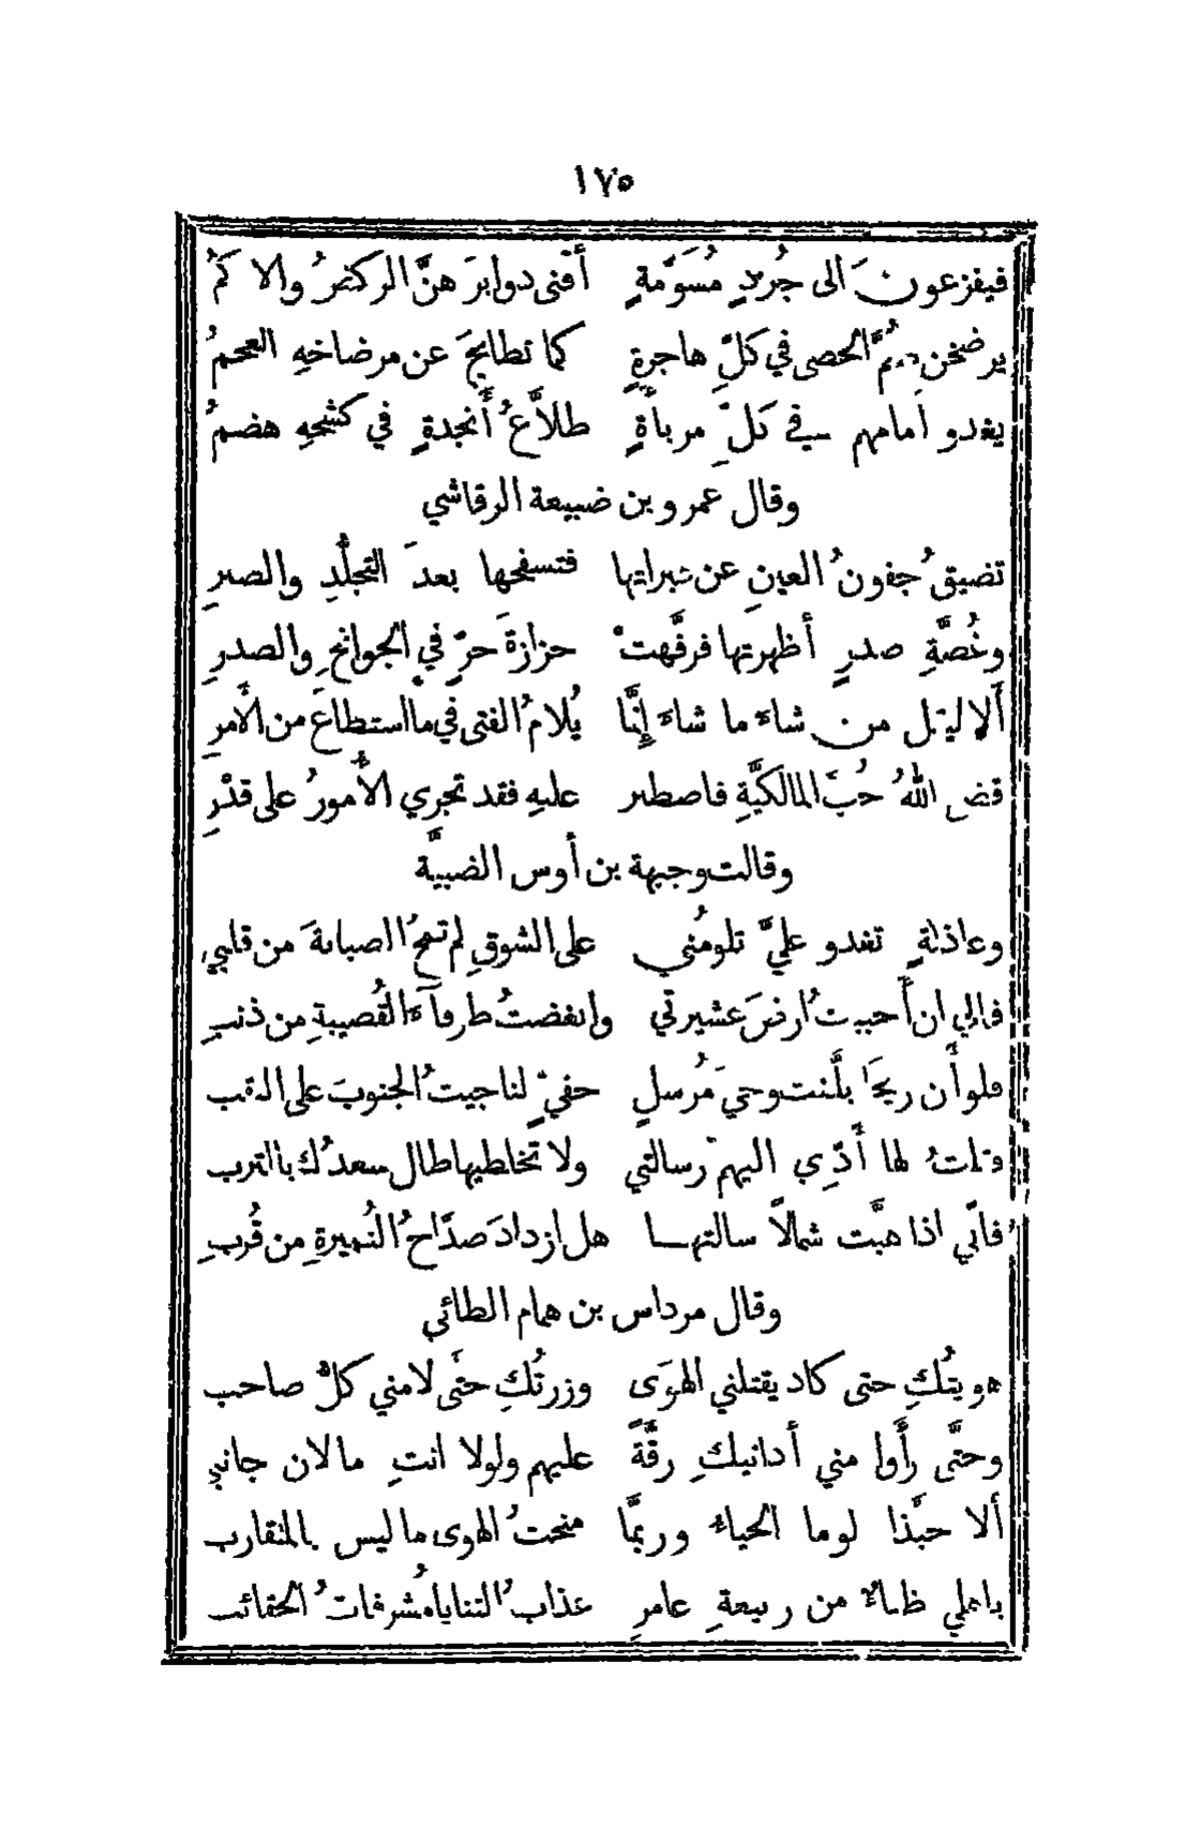 ١٧٥
فيفزعون الى جُردٍ مُسَوَّمةٍ أفنى دوابرَ هنَّ الركضُ والاكمُ
يرضخن صمَّ الحصى في كلِّ هاجرةٍ كما تطايحَ عن مرضاخهِ العجمُ
يغدو أمامهم في كلِّ مربأةٍ طلاَّعُ أنجدةٍ في كشحهِ هضمُ
وقال عمرو بن ضبيعة الرقاشي
تضيقُ جفونُ العينِ عن عبراتها فتسفحها بعدَ التجلُّدِ والصبرِ
وغُصَّةِ صدرٍ أظهرتها فرفَّهتْ حزازةَ حرٍّ في الجوانحِ والصدرِ
ألا ليقل من شاءَ ما شاءَ إنَّما يُلامُ الفتى في ما استطاعَ من الأمرِ
قضى اللهُ حُبَّ المالكيَّةِ فاصطبر عليهِ فقد تجري الأمورُ على قدْرِ
وقالت وجيهة بن أوس الضبيَّة
وعاذلةٍ تغدو عليَّ تلومُني على الشوقِ لم تمحُ الصبابةَ من قلبي
فمالي ان أحببتُ ارضَ عشيرتي وابغضتُ طرفآءَ القُصيبةِ من ذنبِ
فلو أن ريحاً بلَّغت وحيَ مُرسلٍ حفيٍّ لناجيتُ الجنوبَ على النقب
وقلتُ لها أدِّي اليهم رسالتي ولا تخلطيها طال سعدُك بالترب
فانّي اذا هبَّت شمالاً سالتها هل ازدادَ صدَّاحُ النُميرةِ من قُربِ
وقال مرداس بن همام الطائي
هويتُكِ حتى كاد يقتلني الهوَى وزرتُكِ حتَّى لامني كلُّ صاحب
وحتَّى رأَوا مني أدانيكِ رقَّةً عليهم ولولا انتِ ما لان جانبي
ألا حبَّذا لوما الحياءُ وربمَّا منحتُ الهوى ما ليس بالمتقارب
باهلي ظباءٌ من ربيعةِ عامرِ عذابُ الثنايا مُشرفاتُ الحقائب